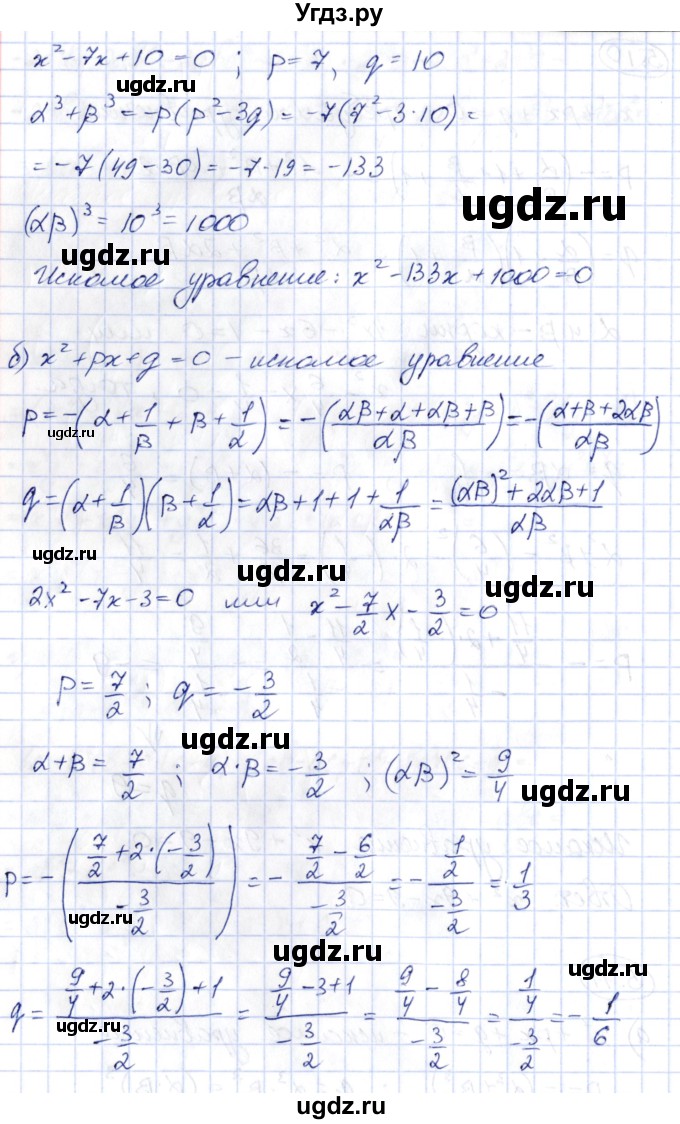 Угдз.ру
x² - 7x + 10 = 0 ; p = 7, q = 10
ugdz.ru
α³ + β³ = -p(p² - 3q) = -7(7² - 3·10) =
= -7(49 - 30) = -7·19 = -133
ugdz.ru
(αβ)³ = 10³ = 1000
ugdz.ru
Искомое уравнение: x² - 133x + 1000 = 0
б) x² + px + q = 0 - искомое уравнение
p = -(α + 1/β + β + 1/α) = -((αβ + α + αβ + β)/αβ) = -((α + β + 2αβ)/αβ)
ugdz.ru
ugdz.ru
q = (α + 1/β)(β + 1/α) = αβ + 1 + 1 + 1/αβ = ((αβ)² + 2αβ + 1)/αβ
ugdz.ru
ugdz.ru
2x² - 7x - 3 = 0 или x² - 7/2 x - 3/2 = 0
p = 7/2 ; q = -3/2
ugdz.ru
α + β = 7/2 ; α·β = -3/2 ; (αβ)² = 9/4
ugdz.ru
p = -((7/2 + 2·(-3/2))/(-3/2)) = -(7/2 - 6/2)/(-3/2) = -(1/2)/(-3/2) = 1/3
ugdz.ru
ugdz.ru
q = (9/4 + 2·(-3/2) + 1)/(-3/2) = (9/4 - 3 + 1)/(-3/2) = (9/4 - 8/4)/(-3/2) = (1/4)/(-3/2) = -1/6
ugdz.ru
ugdz.ru
ugdz.ru
ugdz.ru